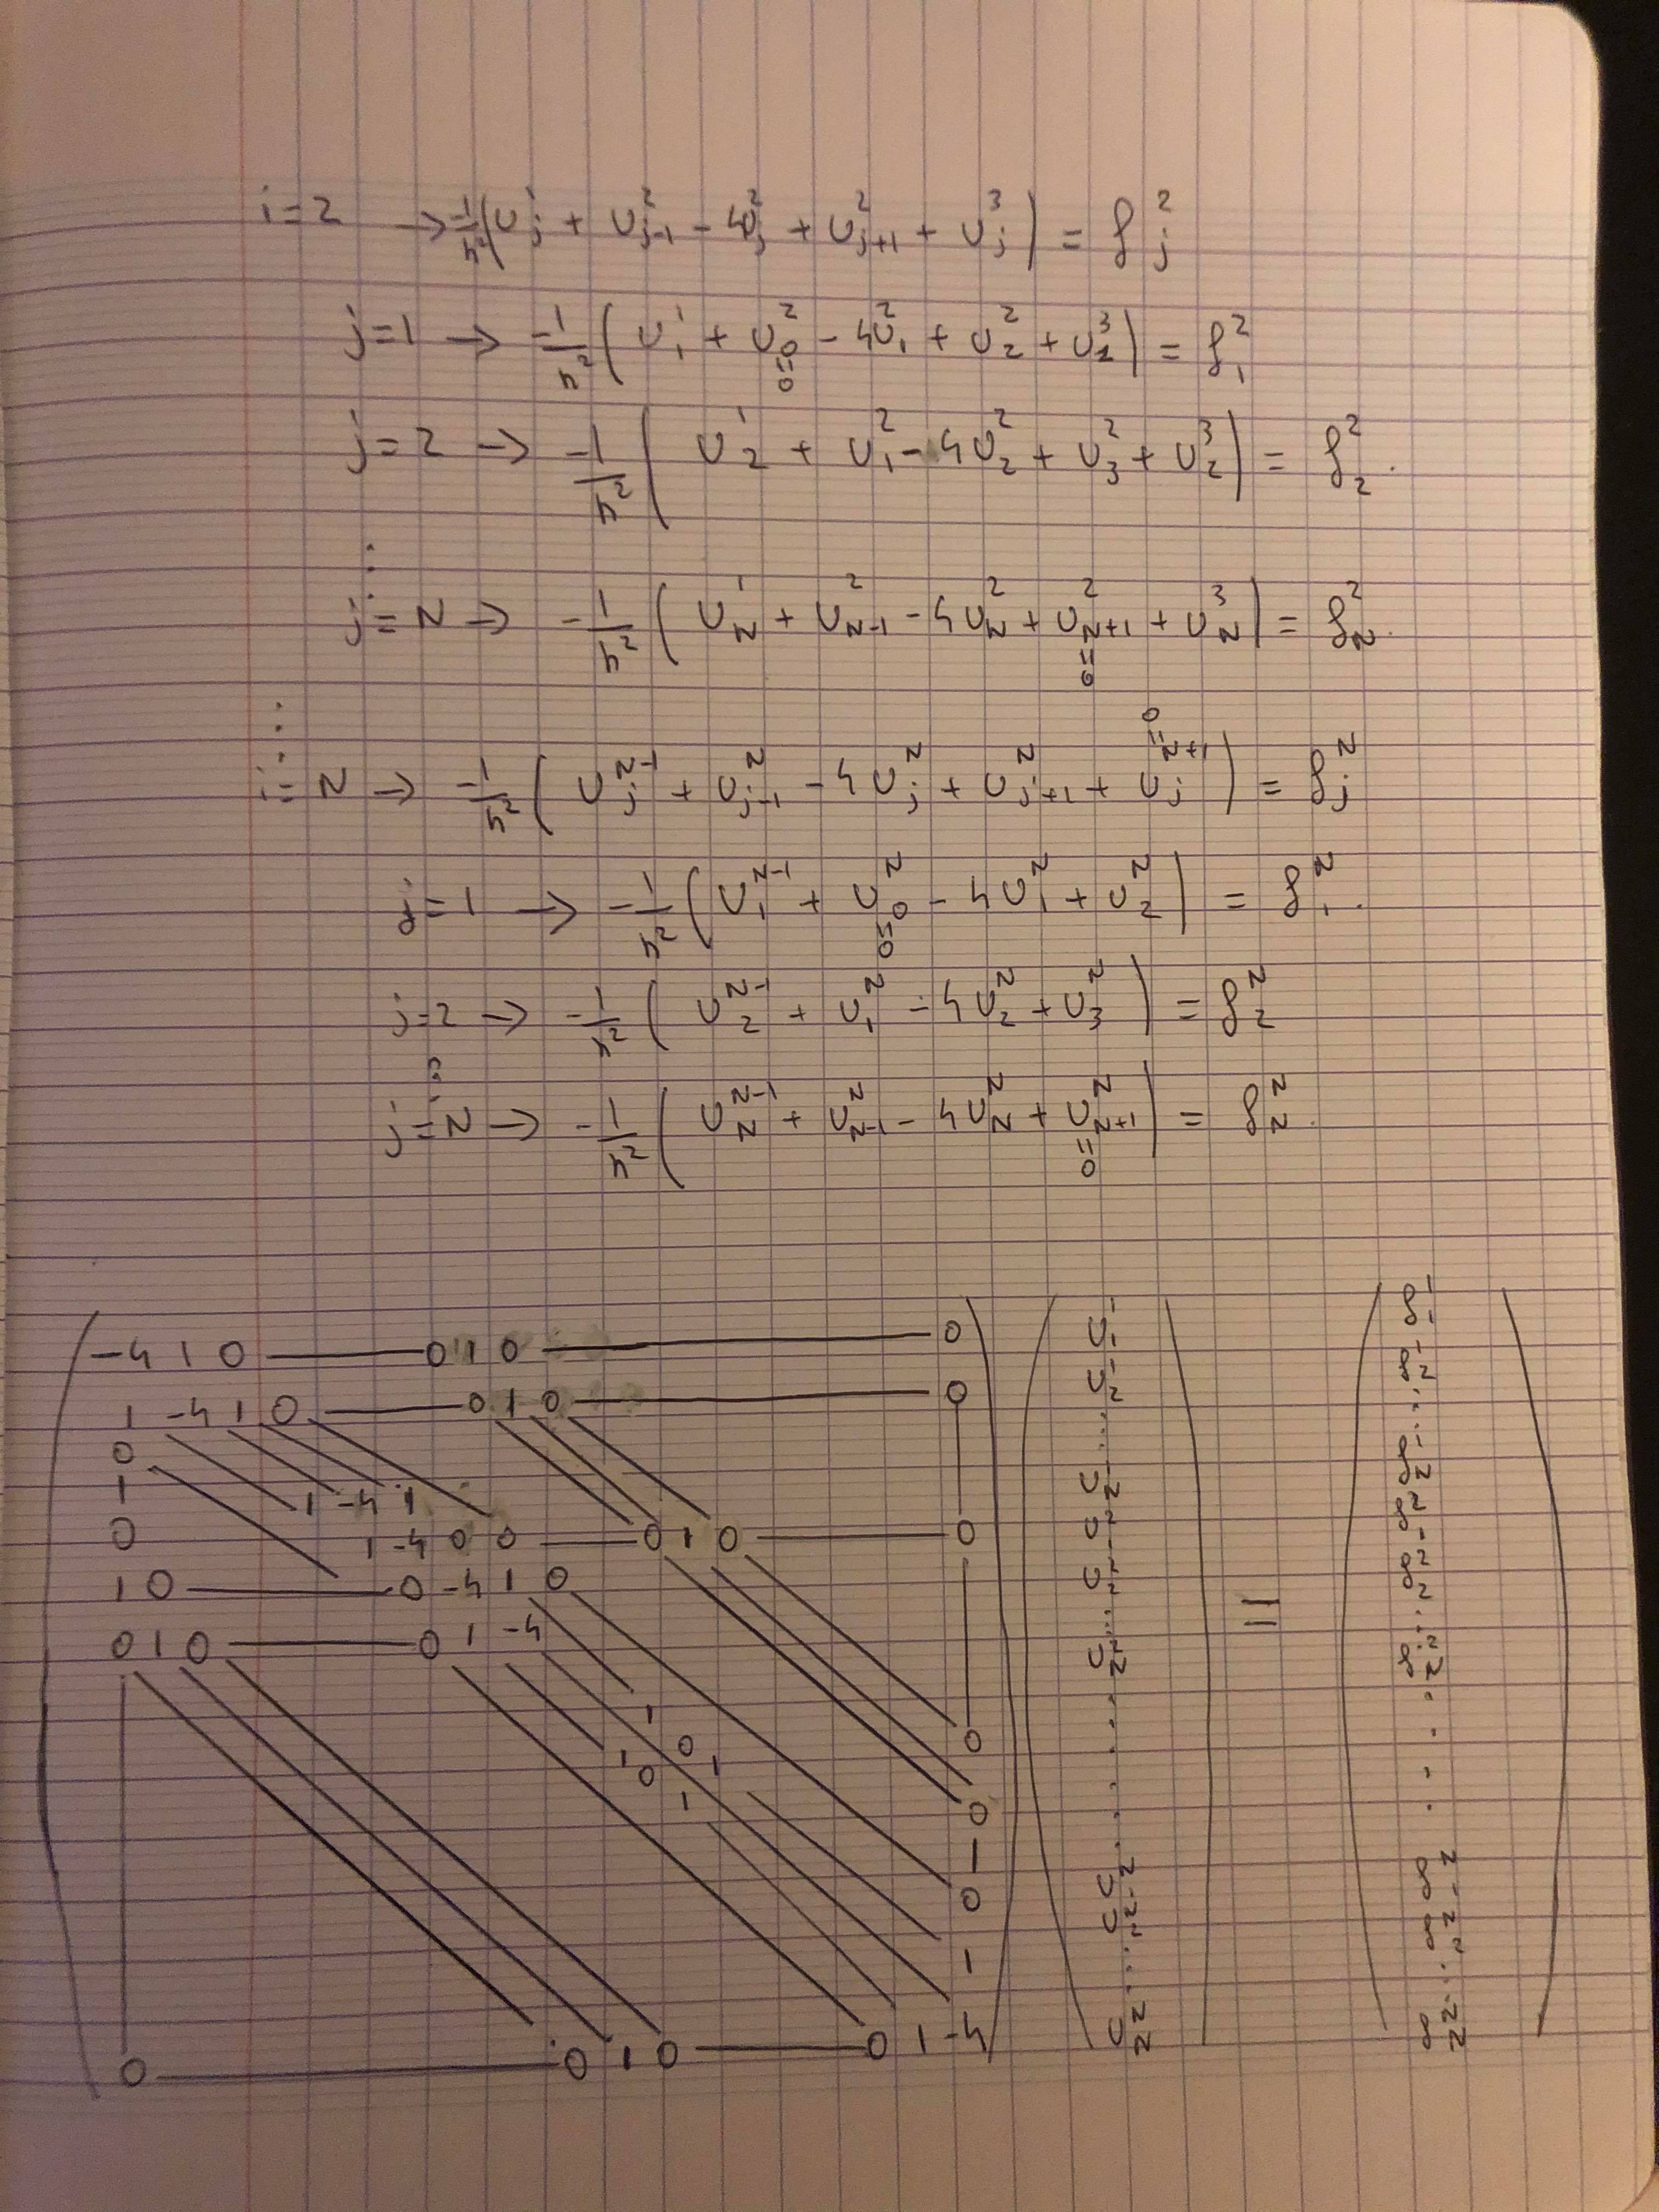 i=2 → -1/h² (U_j^1 + U_{j-1}^2 - 4U_j^2 + U_{j+1}^2 + U_j^3) = f_j^2
j=1 → -1/h² (U_1^1 + U_0^2 - 4U_1^2 + U_2^2 + U_1^3) = f_1^2
=0
j=2 → -1/h² (U_2^1 + U_1^2 - 4U_2^2 + U_3^2 + U_2^3) = f_2^2.
⋮
j=N → -1/h² (U_N^1 + U_{N-1}^2 - 4U_N^2 + U_{N+1}^2 + U_N^3) = f_N^2.
=0
⋮
=0
i=N → -1/h² (U_j^{N-1} + U_{j-1}^N - 4U_j^N + U_{j+1}^N + U_j^{N+1}) = f_j^N
j=1 → -1/h² (U_1^{N-1} + U_0^N - 4U_1^N + U_2^N) = f_1^N.
=0
j=2 → -1/h² (U_2^{N-1} + U_1^N - 4U_2^N + U_3^N) = f_2^N
⋮
j=N → -1/h² (U_N^{N-1} + U_{N-1}^N - 4U_N^N + U_{N+1}^N) = f_N^N.
=0
-4 1 0 0 1 0 0
1 -4 1 0 0 1 0 0
0
1 1 -4 1
0 1 -4 0 0 0 1 0 0
1 0 0 -4 1 0
0 1 0 0 1 -4
1
0
1 0 1 0
0 1
1 0
1
0
1
0 0 1 0 0 1 -4
U_1^1
U_2^1
⋮
U_N^1
U_1^2
U_2^2
⋮
U_N^2
⋮
U_1^N
U_2^N
⋮
U_N^N
=
f_1^1
f_2^1
⋮
f_N^1
f_1^2
f_2^2
⋮
f_N^2
⋮
f_1^N
f_2^N
⋮
f_N^N